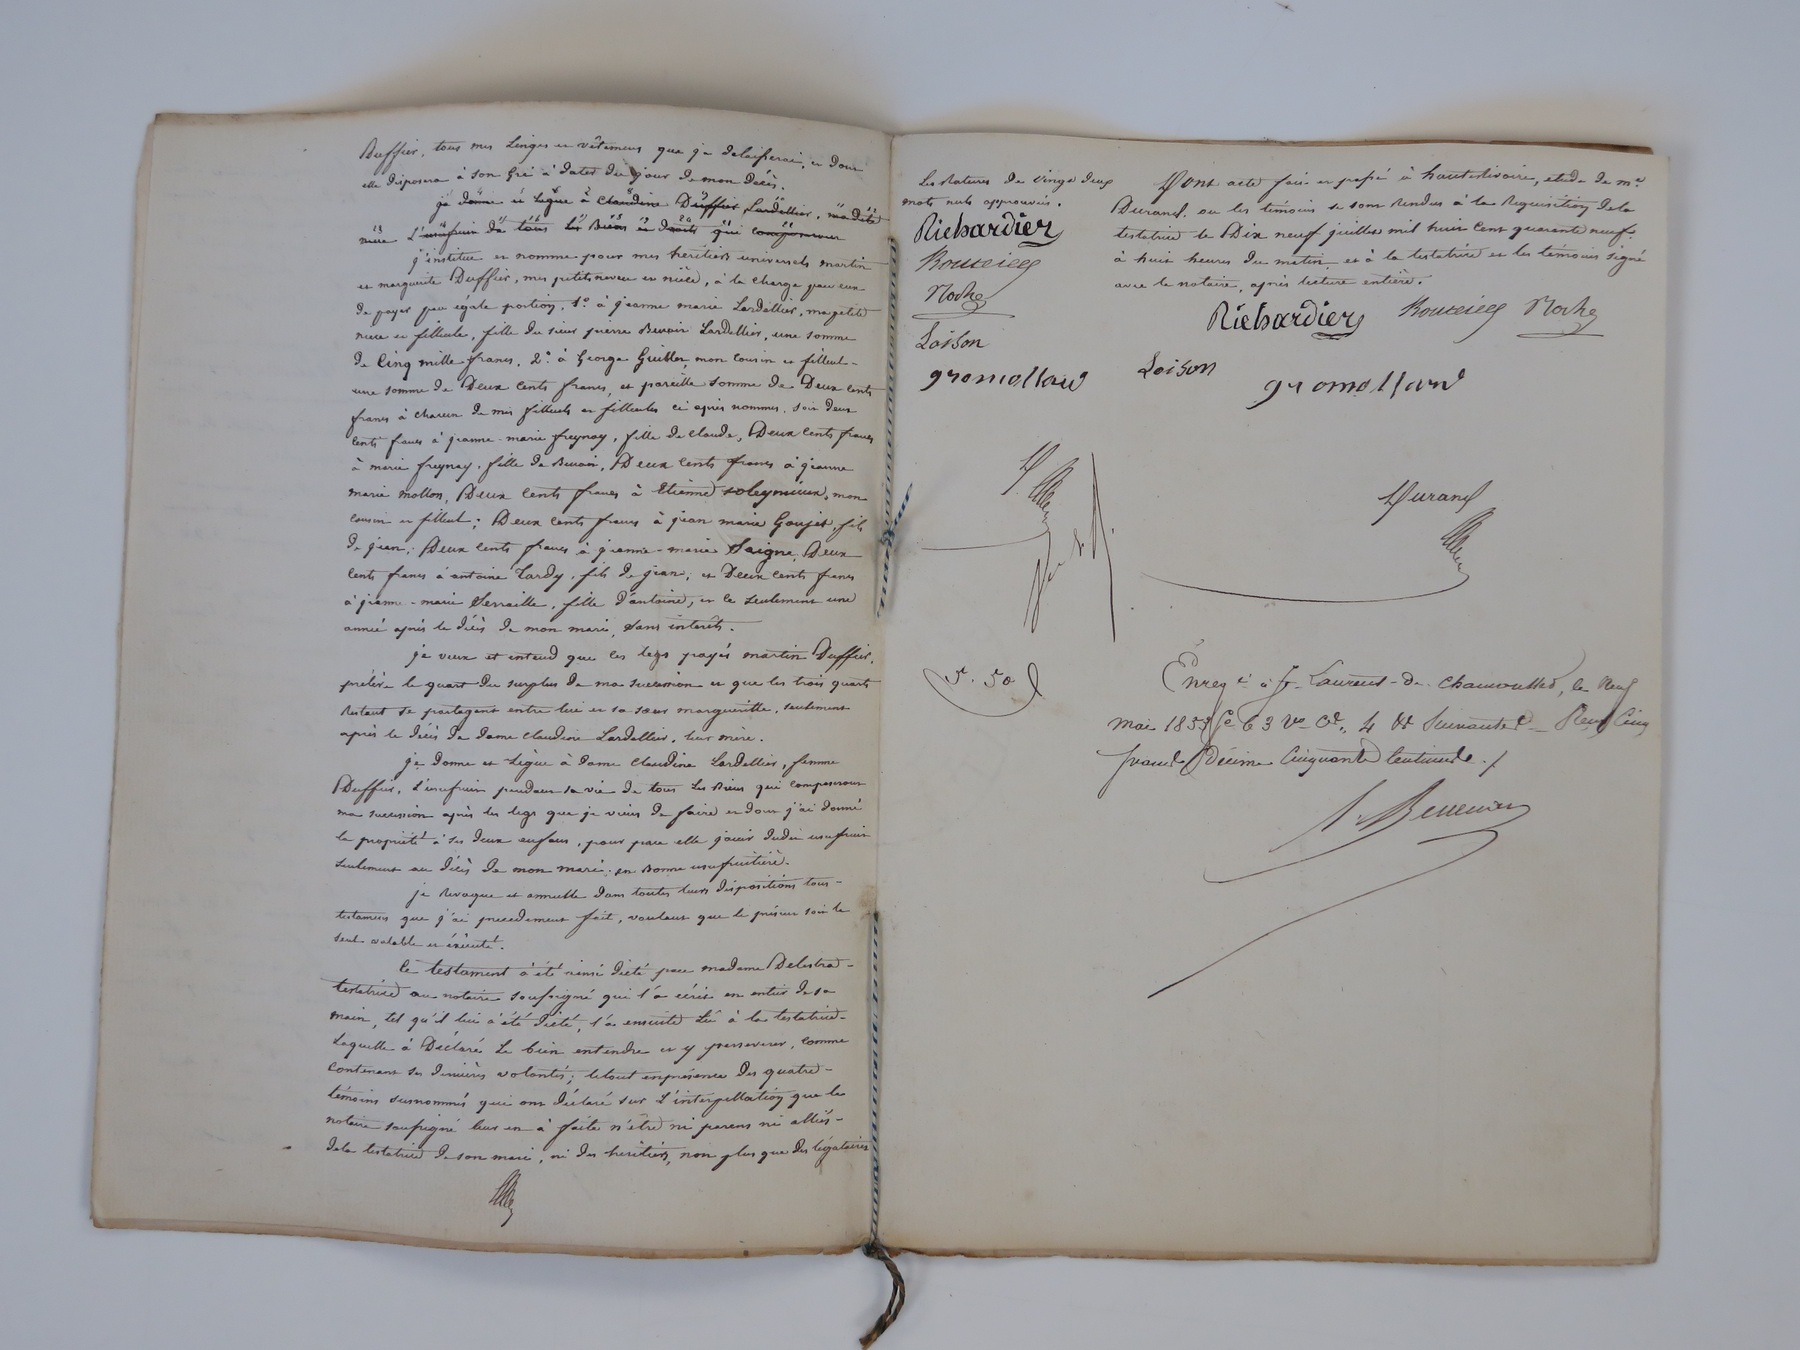 Duffier, tous mes Linges et vêtemens que je delaisserai, et dont
elle disposera à son Gré à dater du jour de mon décès.
je donne et Légue à Claudine Duffier Lardellier, ma dite
nièce L'usufruit de tous les Biens et droits qui composeront
j'institue et nomme pour mes héritiers universels martin
et marguerite Duffier, mes petits neveu et nièce, à la charge par eux
de payer par égale portion, 1.° à jeanne marie Lardellier, ma petite
niece et filleule, fille du sieur pierre Benoit Lardellier, une somme
de Cinq mille francs, 2.° à George Guillon, mon cousin et filleul-
une somme de Deux Cents francs, et pareille somme de Deux Cents
francs à chacun de mes filleuls et filleules ci après nommés, soit deux
Cents francs à jeanne-marie freynay, fille de claude, Deux Cents francs
à marie freynay, fille de Benoit, Deux Cents francs à jeanne
marie mollon, Deux Cents francs à Etienne soleymieux, mon
Cousin et filleul; Deux Cents francs à jean marie Goujet, fils
de jean; Deux Cents francs à jeanne-marie Saigne, Deux
Cents francs à antoine Tardy, fils de jean; et Deux Cents francs
à jeanne-marie Serraille, fille d'antoine, et ce seulement une
année après le décès de mon mari, sans intérêts.
je veux et entend que les legs payés martin Duffier,
prélève le quart du surplus de ma succession et que les trois quarts
Restant se partagent entre lui et sa sœur marguerite, seulement
après le décès de dame claudine Lardellier, leur mere.
je donne et Légue à Dame Claudine Lardellier, femme
Duffier, L'usufruit pendant sa vie de tous Les Biens qui composeront
ma succession après les legs que je viens de faire et dont j'ai donné
la propriété à ses deux enfans, pour par elle jouir dudit usufruit
seulement au décès de mon mari, en Bonne usufruitière.
je Revoque et annulle dans toutes leurs dispositions tous-
testamens que j'ai precedemment fait, voulant que le présent soit le
seul valable et exécuté.
Ce testament a été ainsi dicté par madame Delestra-
testatrice au notaire soussigné qui l'a écrit en entier de sa
main, tel qu'il lui a été dicté, l'a ensuite Lû à la testatrice-
Laquelle à Déclaré Le bien entendre et y perseverer, comme
Contenant ses dernières volontés; le tout en présence des quatre-
témoins susnommés qui ont déclaré sur L'interpellation que le
notaire soussigné leur en a faite n'être ni parens ni alliés-
de la testatrice de son mari, ni des héritiers, non plus que des légataires
Les Ratures de vingt deux
mots nuls approuvées.
Richardier
Rousseil
Roche
Loison
gromollard
5.50
Dont acte fait et passé à hauterivoire, etude de m.e
Durand, ou les témoins se sont Rendus à la Requisition de la
testatrice le Dix neuf juillet mil huit Cent quarante neuf.
à huit heures du matin, et à la testatrice et les témoins signé
avec le notaire, après lecture entière.
Richardier Rousseil Roche
Loison
gromollard
Durand
Enreg.é à S.t Laurent-de-Chamousset, le Neuf
mai 1853 f.o 63 v.o C.e 4 et suivantes Reçu Cinq
francs Décime Cinquante Centimes